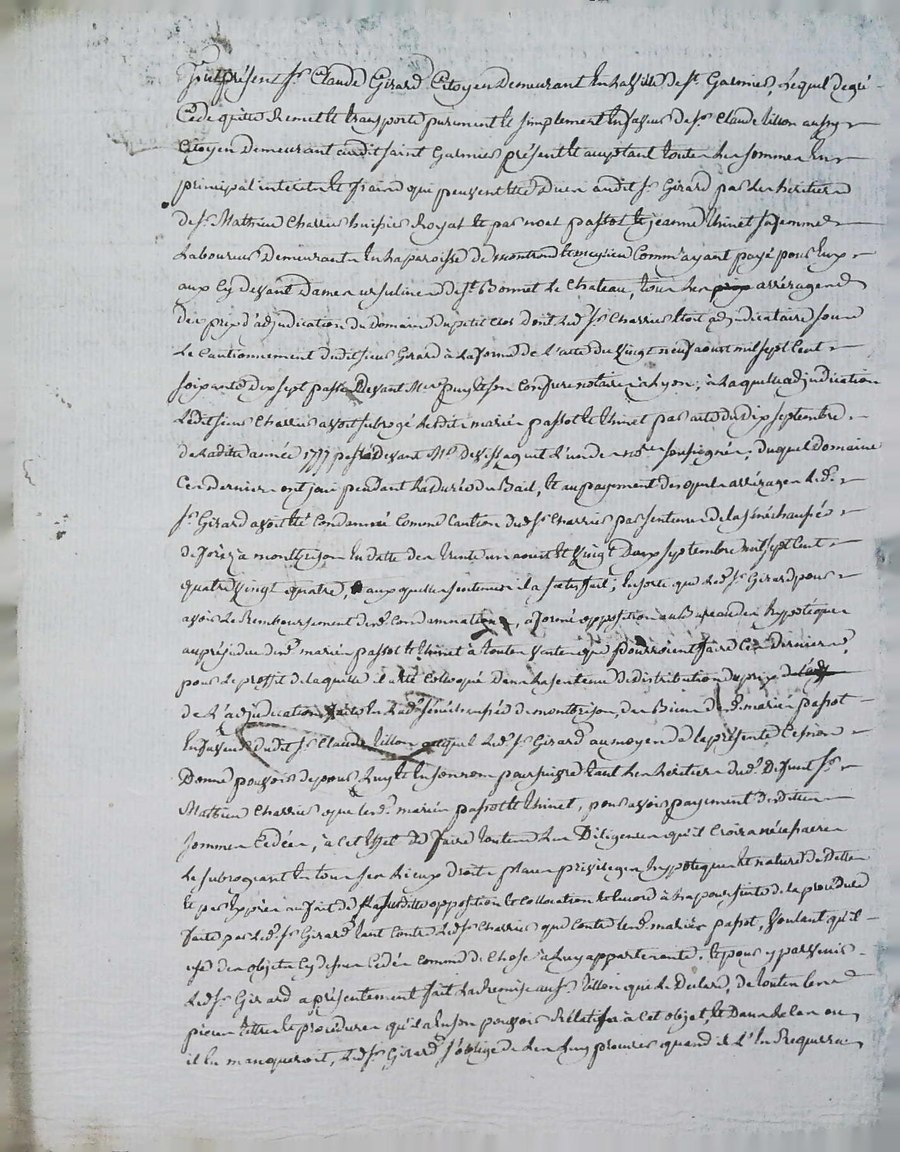 Fut présent Sr. Claude Girard Citoyen Demeurant En la Ville de St. Galmier, Lequel de gré
Cede quitte Remet et transporte purement et simplement En faveur de Sr. Claude Villon aussy
Citoyen Demeurant audit Saint Galmier présent et acceptant toutes Les sommes En
principal interets et fraix qui peuvent être Dues audit Sr. Girard par Les heritiers
de Sr. Mathieu Charrier huissier Royal et par noel passot et jeanne Thinet sa femme
Laboureurs Demeurants En La paroisse de Comm'ayant payé pour Eux
aux Cy devant Dames ursulines de St. Bonnet Le Chateau, tous Les prix arrérages
Des prix d'adjudication du Domaine du petit Clos Dont Led. Sr. Charrier étoit adjudicataire sous
Le Cautionnement dudit sieur Girard à La forme de L'acte du Vingt neuf aoust mil sept Cent
soixante dix sept passé Devant Me. et son Confrere notaires à Lyon; à Laquelle adjudication
Ledit sieur Charrier avoit subrogé Lesdits mariés passot et Thinet par acte du Dix septembre
de Ladite année 1777 passé Devant Me. L'un des nores. soussignés; duquel Domaine
Ces derniers ont joui pendant La durée du Bail, et au payement desquels arrérages Led.
Sr. Girard avoit été Condamné Comme Caution dud. Sr. Charrier par sentences de la sénéchaussée
de forez à montbrison En datte des trente un aoust et Vingt Deux septembre mil sept Cent
quatre Vingt quatre, auxquelles sentences il a satisfait; En sorte que Led. Sr. Girard pour
avoir Le Remboursement desd. Condamnations, a formé opposition au Bureau des hypotéques
au préjudice desd. mariés passot et Thinet à toutes Ventes que pourroient faire Ces Derniers,
pour Le proffit de laquelle il a été Colloqué Dans La sentence de distribution du prix de
de L'adjudication faite En Lad. sénéchaussée de montbrison, des Biens desd. mariés passot
En faveur dudit Sr. Claude Villon auquel Led. Sr. Girard au moyen de la présente Cession
Donne pouvoir de pour Luy et En son nom poursuivre tant Les heritiers dud. Deffunt Sr.
Mathieu Charrier que lesd. mariés passot et Thinet, pour avoir payement desdites
sommes Cedées, à Cet Effet de faire toutes Les Diligences qu'il Croira nécessaires
Le subrogeant En tous ses Lieux droits place privileges hypoteques et nature de Dettes
et par Exprès au fait de sa susditte opposition et Collocation et à la poursuite de la procedure
faite par Led. Sr. Girard tant Contre Led. Sr. Charrier que Contre lesd. mariés passot, Voulant qu'il
use des objets Cy dessus Cedés Comme de Chose à Luy appartenante, et pour y parvenir
Led. Sr. Girard a présentement fait La Remise au Sr. Villon qui Le Declare, de toutes les
pieces titres et procedures qu'il a En son pouvoir Relatifs à Cet objet, et Dans Le Cas ou
il En manqueroit, Led. Sr. Girard s'oblige de Les Luy procurer quand il L'En Requerra